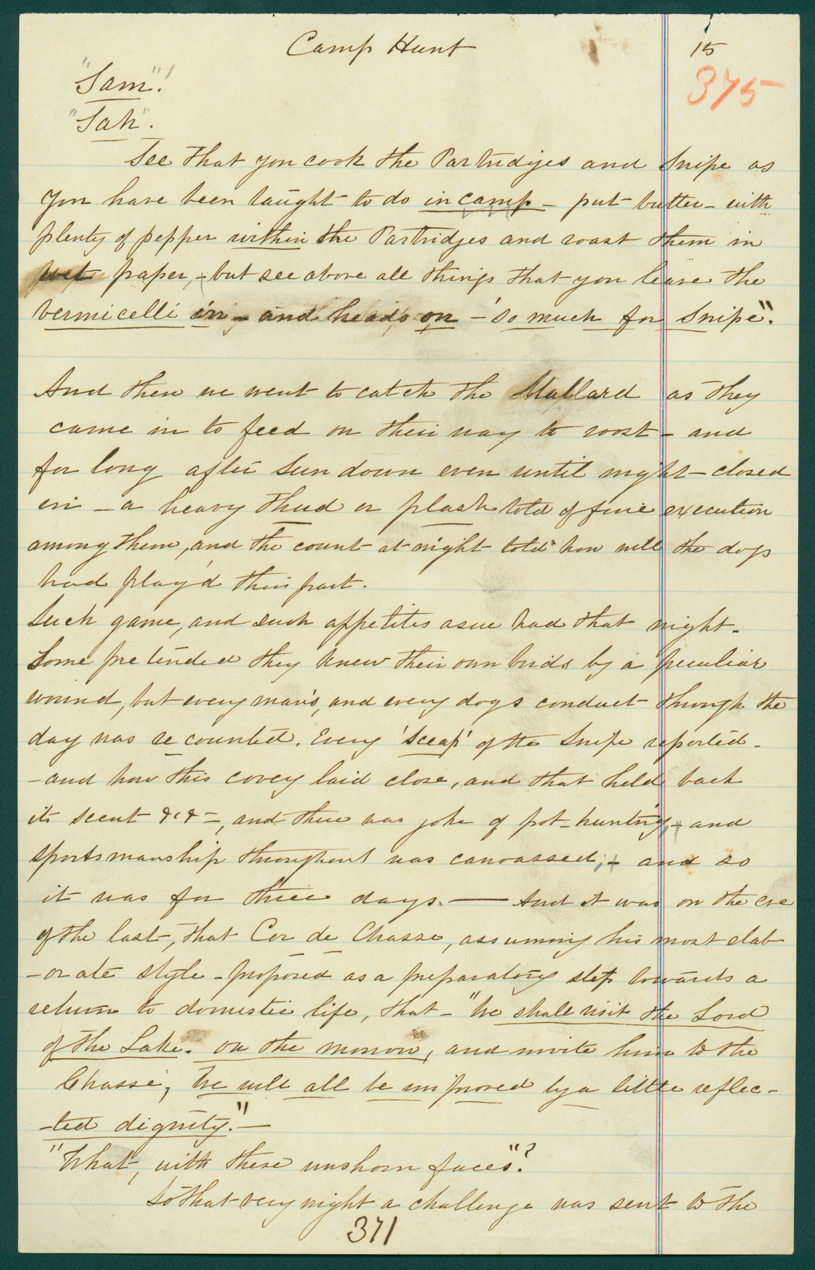 Camp Hunt 15
375
"Sam"!
"Sah".
See that you cook the Partridges and Snipe as
you have been taught to do in camp - put butter - with
plenty of pepper within the Partridges and roast them in
wet paper, - but see above all things that you leave the
vermicelli in - and heads on - 'so much for Snipe".
And then we went to catch the Mallard as they
came in to feed on their way to roost - and
for long after sun down even until night - closed
in - a heavy thud or plash told of fine execution
among them, and the count at night told how well the dogs
had play'd their part.
Such game, and such appetites as we had that night.
Some pretended they knew their own birds by a peculiar
wound, but every man's, and every dogs conduct through the
day was recounted. Every 'sceap' of the Snipe reported -
- and how this covey laid close, and that held back
its scent &c& -, and there was joke of pot-hunting, - and
sportsmanship throughout was canvassed, - and so
it was for three days. — And it was on the eve
of the last, that Cor de Chasse, assuming his most elab
-orate style - proposed as a preparatory step towards a
return to domestic life, that - "We shall visit the Lord
of the Lake. on the morrow, and invite him to the
Chasse, We will all be improved by a little reflec-
-ted dignity." -
"What, with these unshorn faces"?
So that very night a challenge was sent to the
371